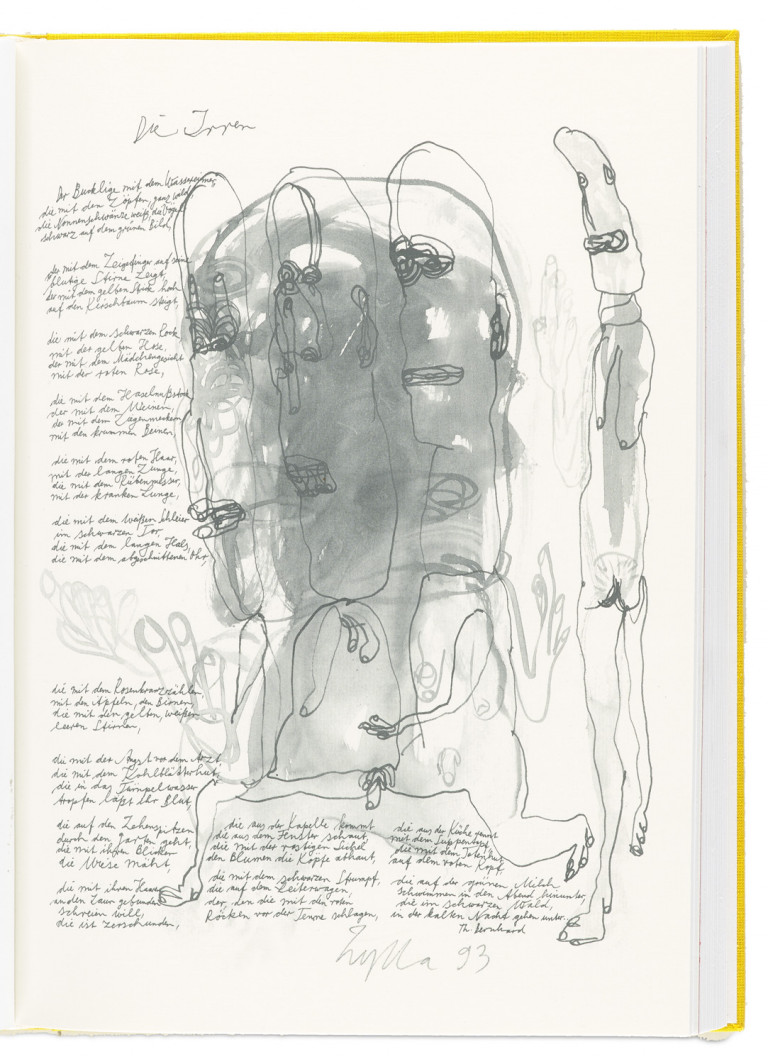 Die Irren
Der Bucklige mit dem Wassereimer,
die mit dem Zöpfen, ganz wild,
die Nonnenschwänze weiß, die Vögel
schwarz auf dem grünen Bild,
der mit dem Zeigefinger auf seine
blutige Stirne zeigt,
der mit dem gelben Stock hoch
auf den Kirschbaum steigt,
die mit dem schwarzen Rock
mit der gelben Hose,
der mit dem Mädchengesicht
mit der roten Rose,
die mit dem Haselnußstock
der mit dem Weinen,
der mit dem
mit den krummen Beinen,
die mit dem roten Haar,
mit der langen Zunge,
die mit dem Rübenmesser,
mit der kranken Lunge,
die mit dem weißen Schleier
im schwarzen Tor,
die mit dem langen Hals,
die mit dem abgeschnittenen Ohr,
die mit dem Rosenkranzzählen,
mit den Äpfeln, den Birnen,
die mit den gelben, weißen
leeren Stirnen,
die mit der Angst vor dem Arzt
die mit dem Kohlblätterhut,
die in das Tümpelwasser
tropfen läßt ihr Blut,
die auf den Zehenspitzen
durch den Garten geht,
die mit ihren Blicken
die Wiese mäht,
die mit ihren Haaren
an den Zaun gebunden
schreien will,
die ist zerschunden,
die aus der Kapelle kommt
die aus dem Fenster schaut,
die mit der rostigen Sichel
den Blumen die Köpfe abhaut,
die mit dem schwarzen Strumpf,
die auf dem Leiterwagen,
der, den die mit den roten
Röcken vor der Tenne schlagen,
die aus der Küche rennt
mit dem Suppentopf,
die mit dem Totenkranz
auf dem roten Kopf,
die auf der grünen Milch
schwimmen in den Abend hinunter,
die im schwarzen Wald,
in der kalten Nacht gehen unter.
Th. Bernhard
Zylla 93